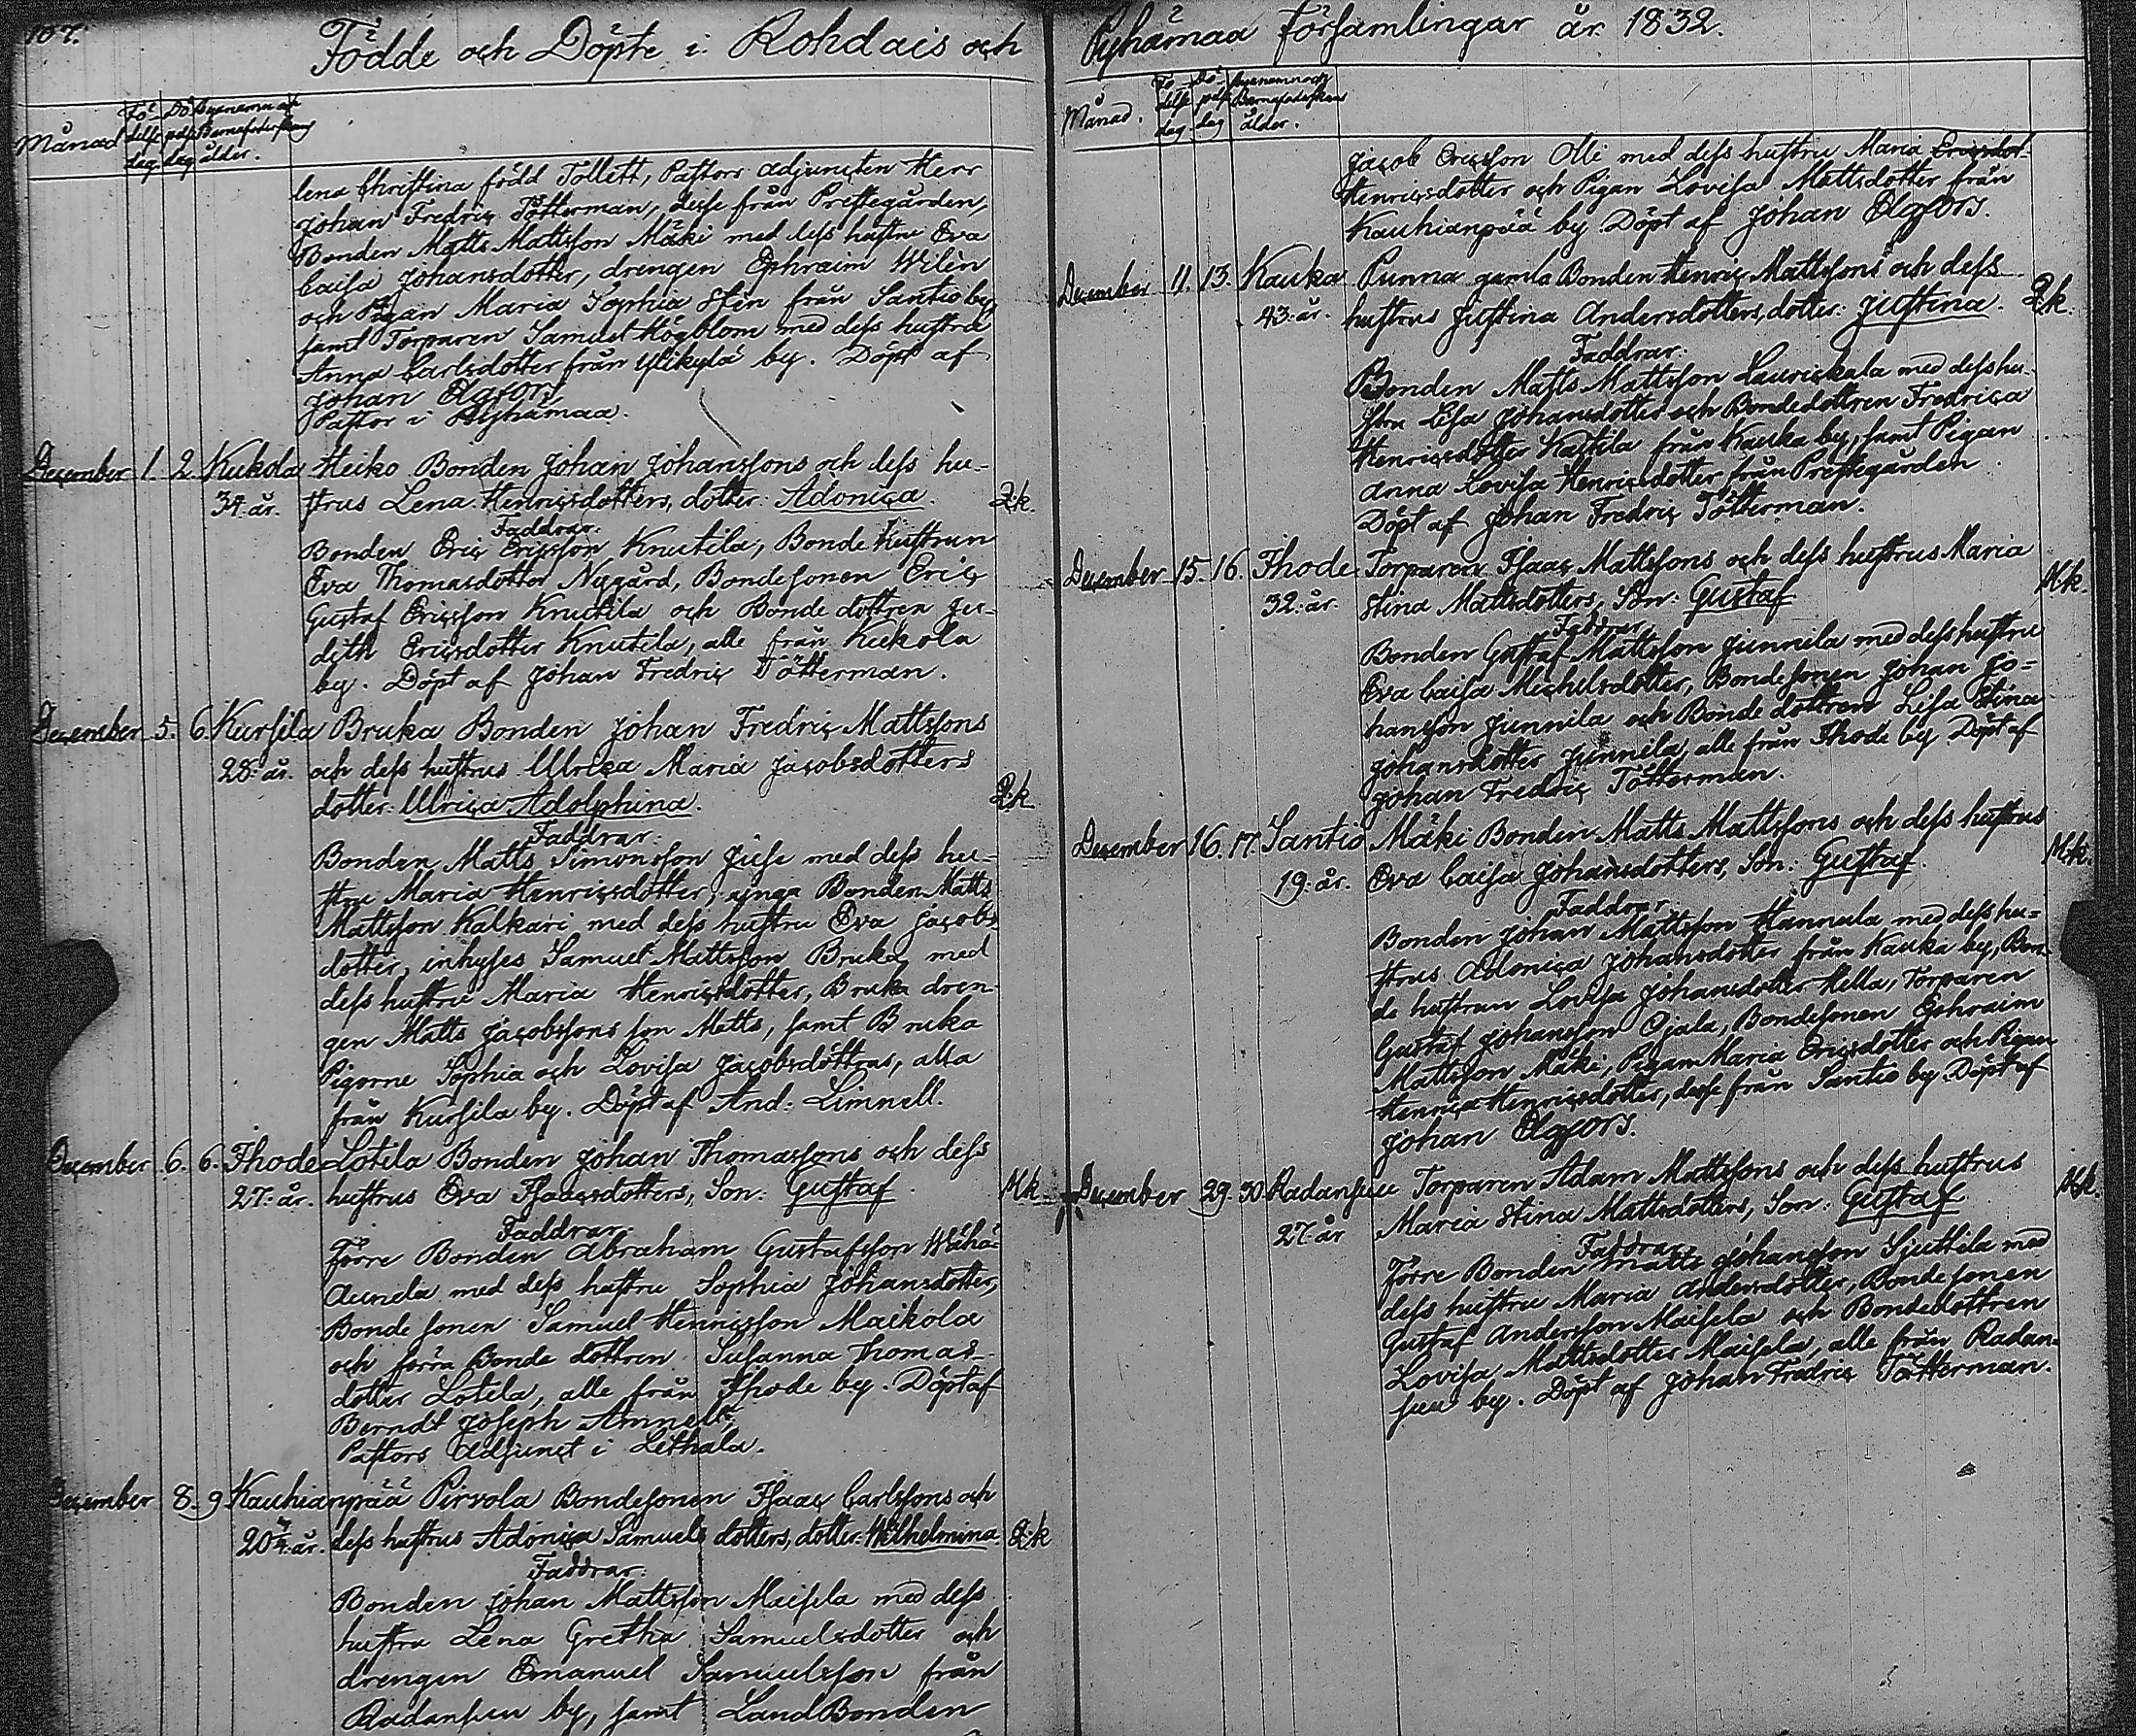 107.
Födde och Döpte i Rohdais och
Månad Fö- Dö- Byanamn och
delse pelse Barnafoderskans
dag. dag ålder.
lena Christina född Tollett, Pastors adjuncten Herr
Johan Fredric Tötterman, desse från Prestegården,
Bonden Matts Mattsson Mäki med dess hustru Eva
Caisa Johansdotter, drengen Ephraim Wilén
och Pigan Maria Sophia Sten från Santio by,
samt Torparen Samuel Högblom med dess hustru
Anna Carlsdotter från Ylikylä by. Döpt af
Johan Elgfors,
Pastor i Pyhämaa.
December 1. 2. Kukola Heiko Bonden Johan Johanssons och dess hu-
34. år. strus Lena Henricsdotters, dotter: Adonica. Q.k.
Faddrar:
Bonden Eric Ericsson Knutila, Bonde hustrun
Eva Thomasdotter Nygård, Bondesonen Eric
Gustaf Ericsson Knutila och Bonde dottren Ju-
dith Ericsdotter Knutila, alle från Kukola
by. Döpt af Johan Fredric Tötterman.
December 5. 6. Kursila Bruka Bonden Johan Fredric Mattssons
28. år. och dess hustrus Ulrica Maria Jacobsdotters
dotter: Ulrica Adolphina. Q.k
Faddrar:
Bonden Matts Simonsson Juse med dess hu-
stru Maria Henricsdotter, unga Bonden Matts
Mattsson Kalkari med dess hustru Eva Jacobs-
dotter, inhyses Samuel Mattsson Bruka med
dess hustru Maria Henricsdotter, Bruka dren-
gen Matts Jacobssons son Matts, samt Bruka
Pigorne Sophia och Lovisa Jacobsdöttrar, alla
från Kursila by. Döpt af And: Limnell.
December 6. 6. Ihode Lotila Bonden Johan Thomassons och dess
27. år. hustrus Eva Isaacsdotters, Son: Gustaf. M.k.
Faddrar:
Förre Bonden Abraham Gustafsson Wähä-
Aunela med dess hustru Sophia Johansdotter,
Bonde sonen Samuel Henricsson Maikola
och förra Bonde dottren Susanna Thomas-
dotter Lotila, alle från Ihode by. Döpt af
Berndt Joseph Amnell,
Pastors Adjunct i Lethala.
December 8. 9. Kauhianpää Pirvola Bondesonen Isaac Carlssons och
20 år. dess hustrus Adonica Samuels dotters, dotter: Wilhelmina. Q.k
Faddrar:
Bonden Johan Mattsson Maisela med dess
hustru Lena Gretha Samuelsdotter och
drengen Emanuel Samuelsson från
Radansuu by, samt LandBonden
Pyhämaa Församlingar år 1832.
Månad. Fö- Dö- Byanamn och
delse pelse Barnafoderskans
dag dag ålder.
Jacob Ericsson Olli med dess hustru Maria Ericsdot-
Henricsdotter och Pigan Lovisa Mattsdotter från
Kauhianpää by. Döpt af Johan Elgfors.
December 11. 13. Kauka Punna gamla Bonden Henric Mattssons och dess
43. år. hustrus Justina Andersdotters, dotter: Justina. Q.k.
Faddrar:
Bonden Matts Mattsson Laurickala med dess hu-
stru Lisa Johansdotter och Bondedottren Fredrica
Henricsdotter Kattila från Kauka by, samt Pigan
Anna Lovisa Henricsdotter från Prestegården.
Döpt af Johan Fredric Tötterman.
December 15. 16. Ihode Torparen Isaac Mattssons och dess hustrus Maria
32. år. Stina Mattsdotters, Son: Gustaf M.k.
Faddrar
Bonden Gustaf Mattsson Junnila med dess hustru
Eva Caisa Michelsdotter, Bondesonen Johan Jo-
hansson Junnila och Bonde dottren Lisa Stina
Johansdotter Junnila, alle från Ihode by. Döpt af
Johan Fredric Tötterman.
December 16. 17. Santio Mäki Bonden Matts Mattssons och dess hustrus
19. år. Eva Caisa Johansdotters, Son: Gustaf. M.k.
Faddrar.
Bonden Johan Mattsson Hannula med dess hu-
strus Adonica Johansdotter från Kauka by, Bon-
de hustrun Lovisa Johansdotter Hella, Torparen
Gustaf Johansson Ojala, Bondesonen Ephraim
Mattsson Mäki, Pigan Maria Ericsdotter och Pigan
Henrica Henricsdotter, desse från Santio by. Döpt af
Johan Elgfors.
December 29. 30. Radansuu Torparen Adam Mattssons och dess hustrus
27. år Maria Stina Mattsdotters, Son: Gustaf M.k.
Faddrar.
Förre Bonden Matts Johansson Sjuttila med
dess hustru Maria Andersdotter, Bondesonen
Gustaf Andersson Maisela och Bondedottren
Lovisa Mattsdotter Maisela, alle från Radan-
suu by. Döpt af Johan Fredric Tötterman.